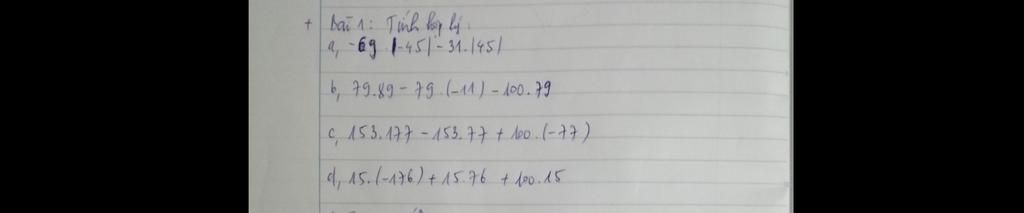 + Bài 1: Tính hợp lý:
a, -69 . |-45| - 31.|45|
b, 79.89 - 79.(-11) - 100.79
c, 153.177 - 153.77 + 100.(-77)
d, 15.(-176) + 15.76 + 100.15